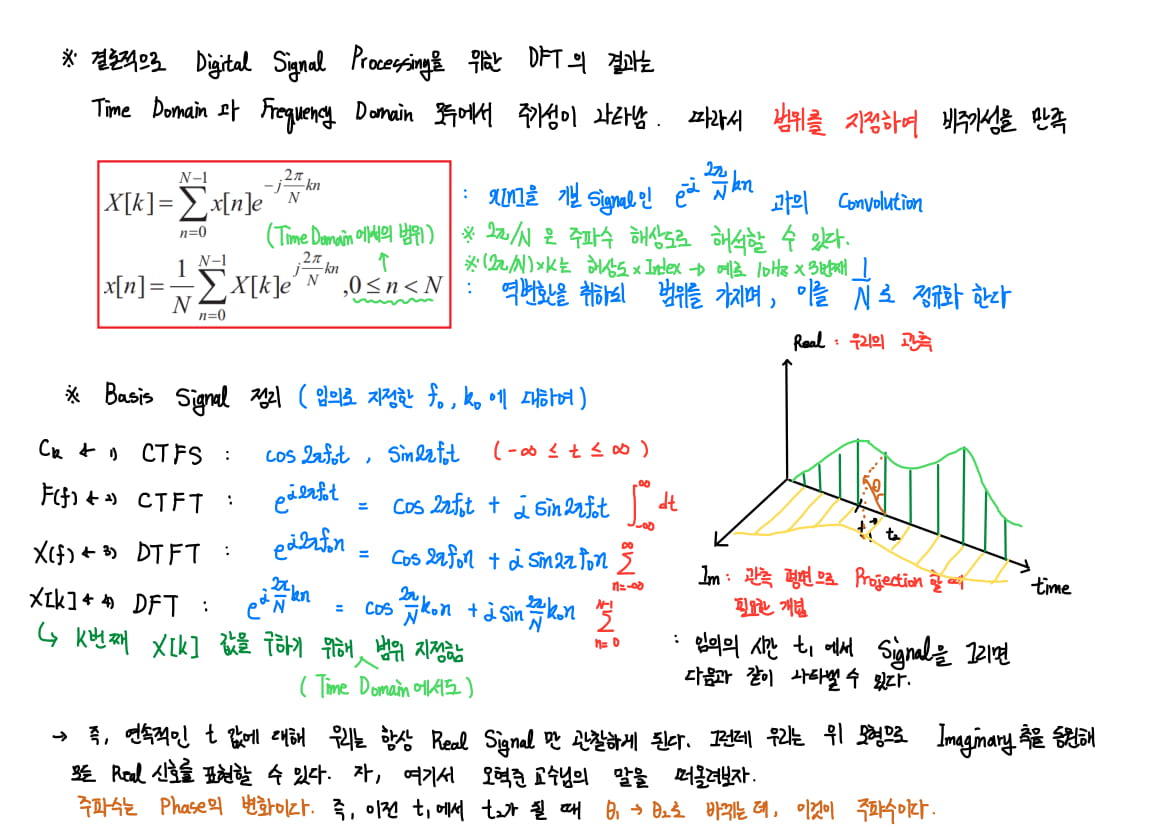 ※ 결론적으로 Digital Signal Processing을 위한 DFT의 결과는
Time Domain과 Frequency Domain 모두에서 주기성이 나타남. 따라서 범위를 지정하여 비주기성을 만족
X[k] = \sum_{n=0}^{N-1} x[n]e^{-j\frac{2π}{N}kn} : x[n]을 개별 Signal인 e^{-j\frac{2π}{N}kn} 과의 Convolution
(Time Domain에서의 범위) ※ 2π/N 은 주파수 해상도로 해석할 수 있다.
※ (2π/N)×k는 해상도×Index → 예로 10Hz × 3번째
x[n] = \frac{1}{N}\sum_{n=0}^{N-1} X[k]e^{j\frac{2π}{N}kn}, 0 ≤ n < N : 역변환을 취하되 범위를 가지며, 이를 \frac{1}{N}로 정규화 한다
Real : 우리의 관측
※ Basis Signal 정리 (임의로 지정한 f₀, k₀에 대하여)
C_k ← 1) CTFS : cos 2πf₀t , sin 2πf₀t (-∞ ≤ t ≤ ∞)
F(f) ← 2) CTFT : e^{j2πf₀t} = cos 2πf₀t + j sin 2πf₀t \int_{-∞}^{∞} dt
X(f) ← 3) DTFT : e^{j2πf₀n} = cos 2πf₀n + j sin 2πf₀n \sum_{n=-∞}^{∞}
X[k] ← 4) DFT : e^{j\frac{2π}{N}kn} = cos\frac{2π}{N}k₀n + j sin\frac{2π}{N}k₀n \sum_{n=0}^{N-1}
↳ k번째 X[k] 값을 구하기 위해 범위 지정함
(Time Domain에서도)
θ
t₁
t₂
time
Im : 관측 평면으로 Projection 할 때
필요한 개념
: 임의의 시간 t₁에서 Signal을 그리면
다음과 같이 나타낼 수 있다.
→ 즉, 연속적인 t 값에 대해 우리는 항상 Real Signal만 관찰하게 된다. 그런데 우리는 위 모형으로 Imaginary 축을 동원해
모든 Real 신호를 표현할 수 있다. 자, 여기서 오혁준 교수님의 말을 떠올려보자.
주파수는 Phase의 변화이다. 즉, 이전 t₁에서 t₂가 될 때 θ₁ → θ₂로 바뀌는데, 이것이 주파수이다.